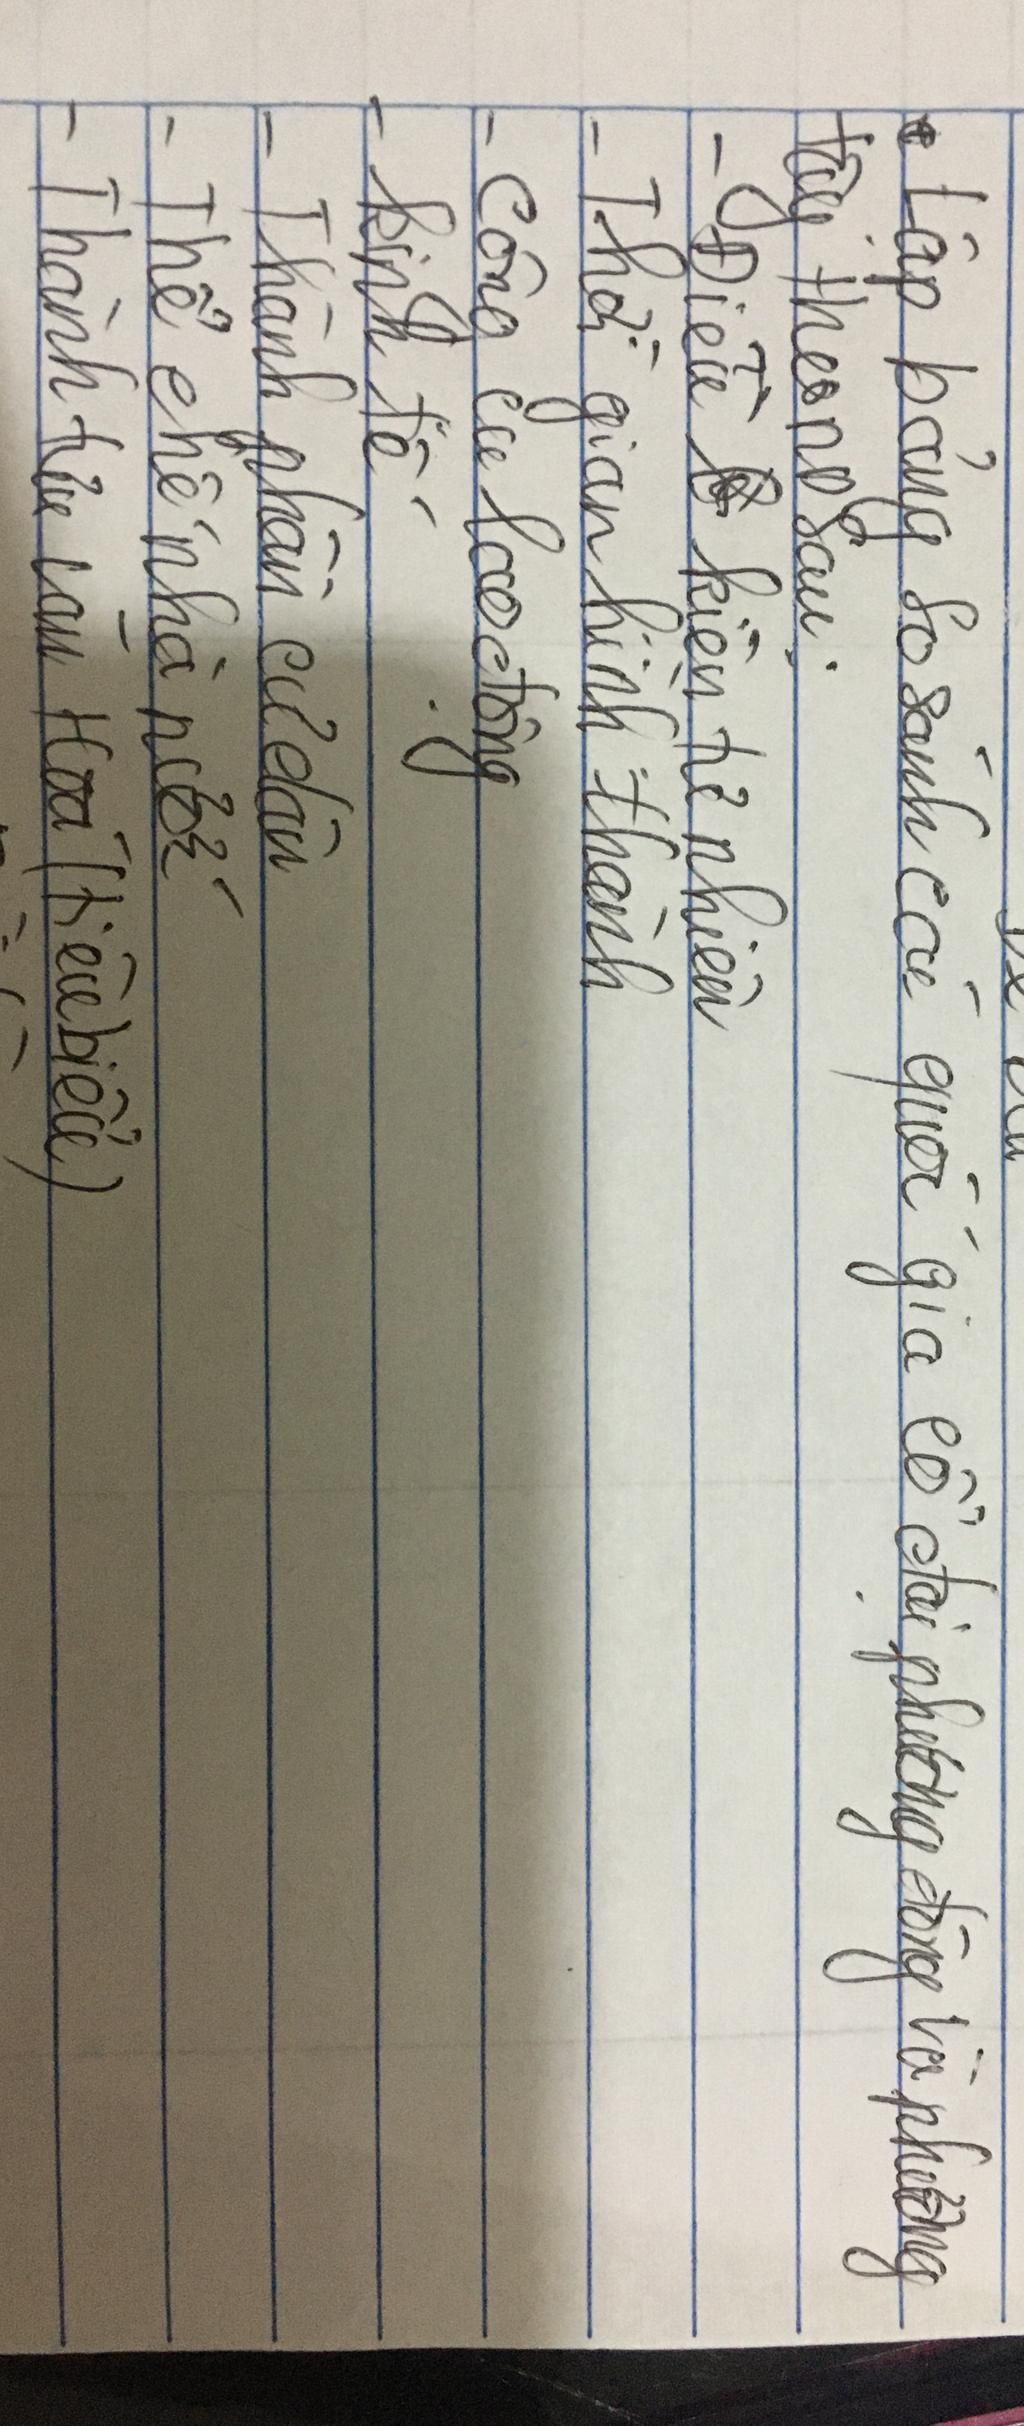 Lập bảng so sánh các quốc gia cổ đại phương đông và phương
tây theo nd sau:
- Điều kiện tự nhiên
- Thời gian hình thành
- Công cụ lao động
- kinh tế
- Thành phần cư dân
- Thể chế nhà nước
- Thành tựu văn Hoá (tiêu biểu)